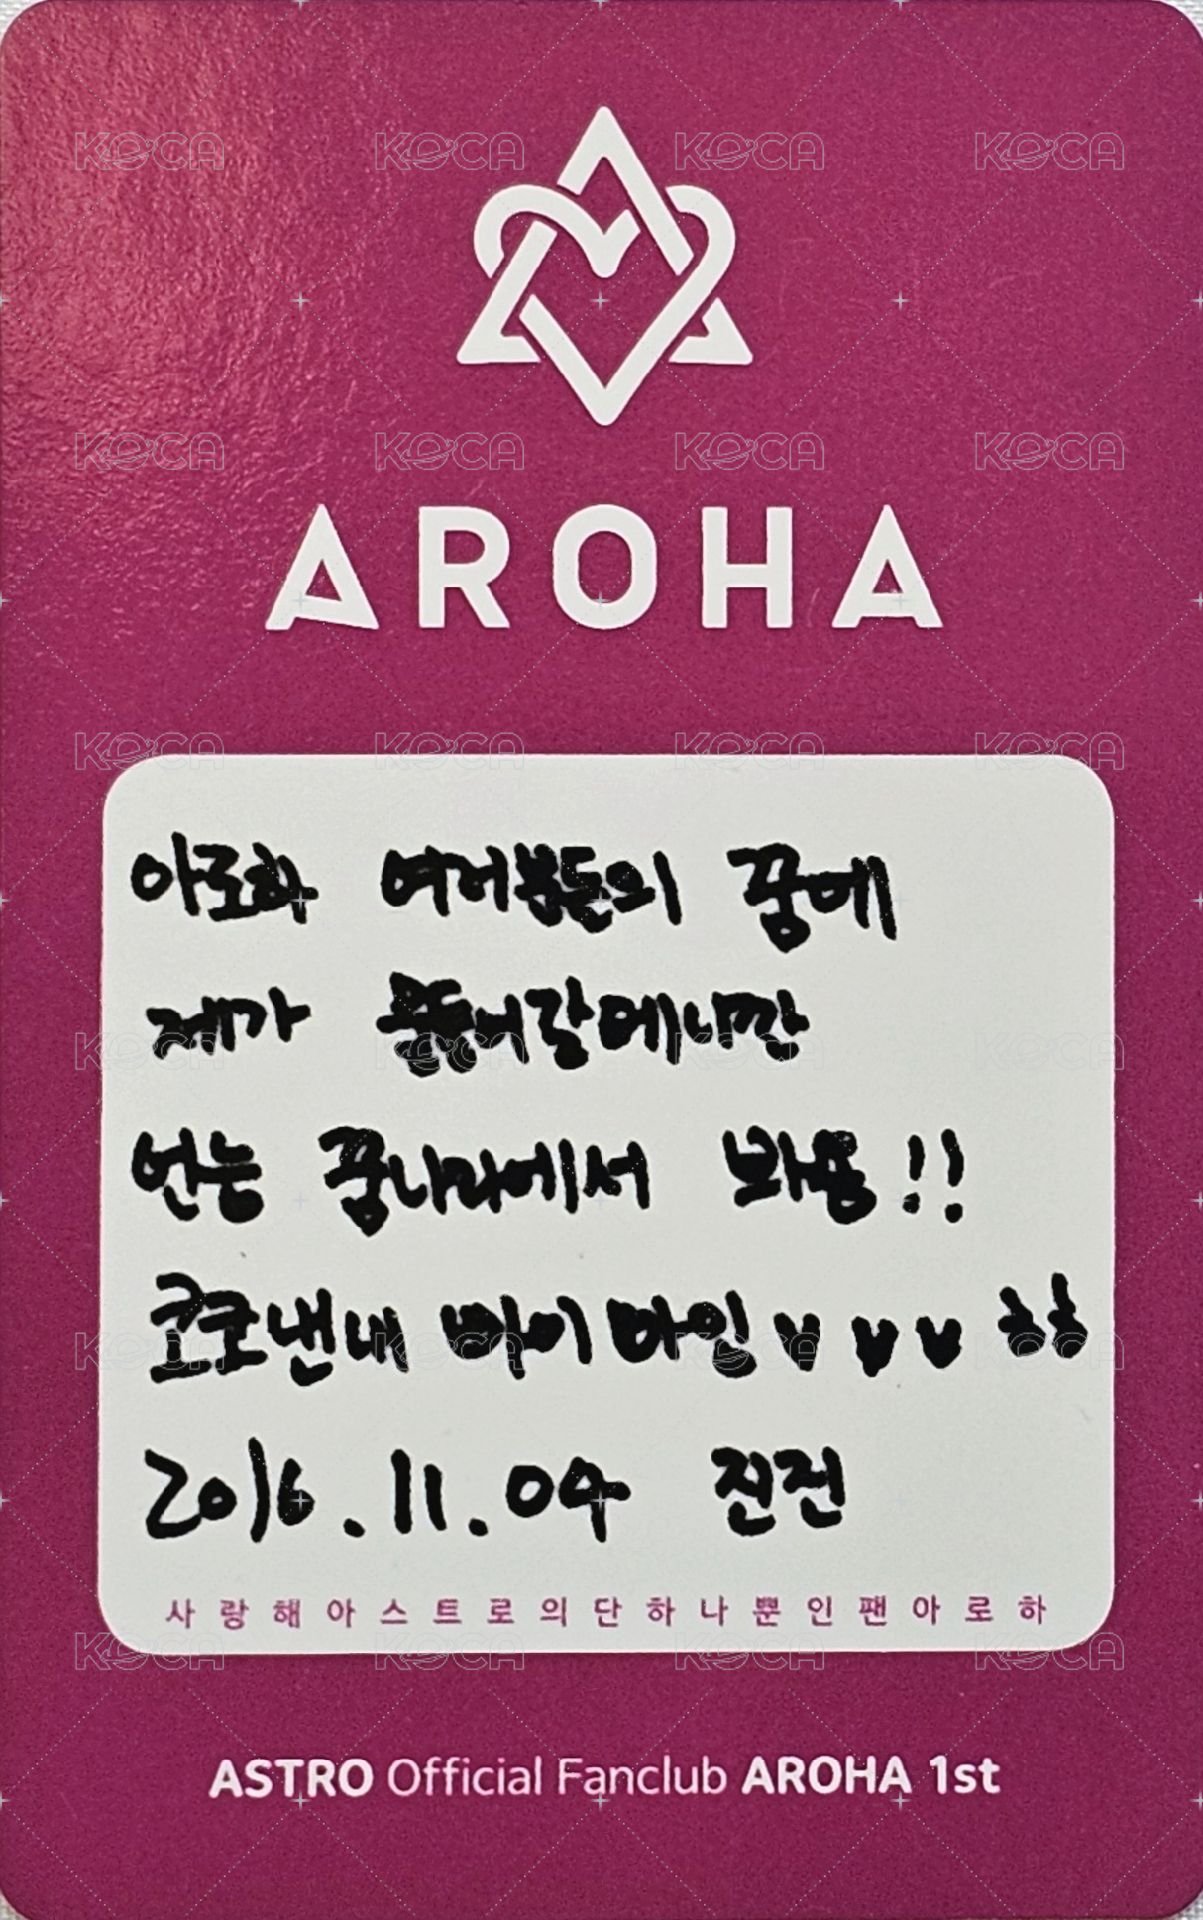 AROHA
아로하 여러분들의 꿈에
제가
언능 꿈나라에서 봐용!!
코코낸내 마이 마인 v v v ㅎㅎ
2016.11.04 진진
사랑해아스트로의단하나뿐인팬아로하
ASTRO Official Fanclub AROHA 1st
KOCA